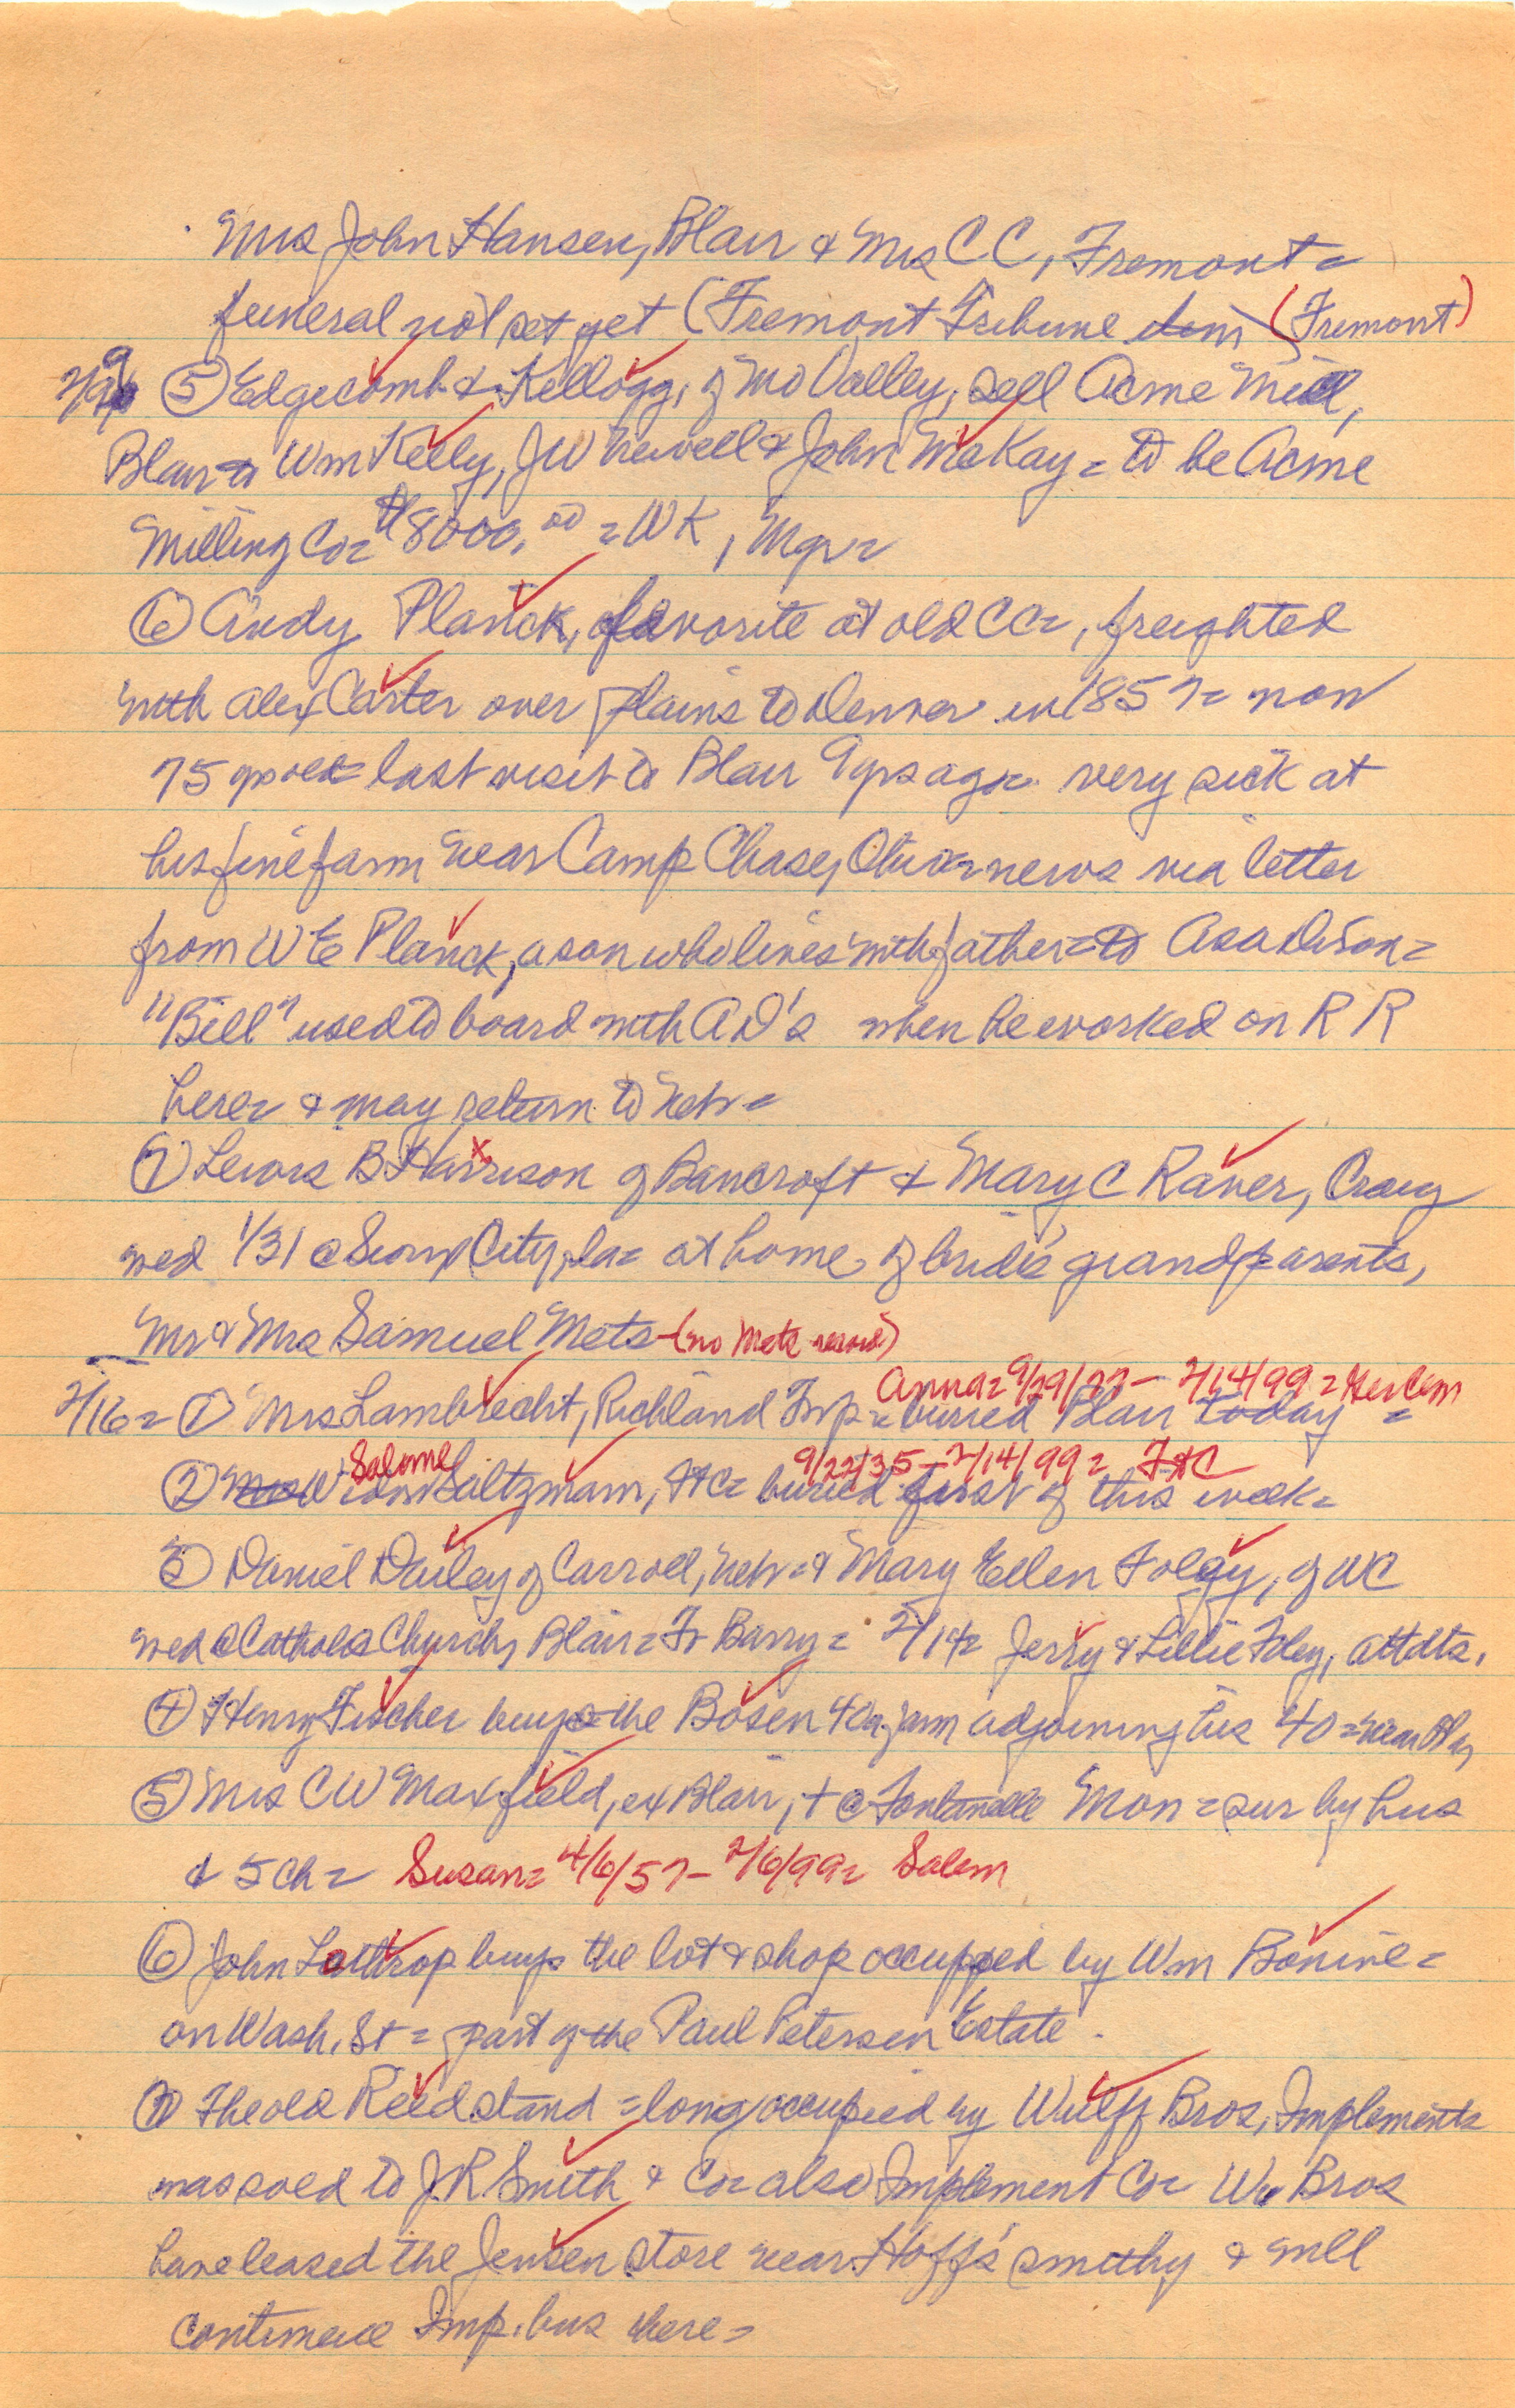 Mrs John Hansen, Blair & Mrs C C, Fremont =
funeral not set yet (Fremont Tribune item (Fremont)
2/9 = ⑤ Edgecomb & Kellogg, of Mo Valley, sell Acme Mill,
Blair to Wm Kelly, J W Newell & John McKay = to be Acme
Milling Co = $8000.00 = W K, Mgr =
⑥ Andy Planck, favorite at old CC =, freighted
with Alex Carter over plains to Denver in 1857 = now
75 yrs old = last visit to Blair 9 yrs ago = very sick at
his fine farm near Camp Chase, Ohio = news via letter
from W E Planck, a son who lives with father = to Asa Dixon =
"Bill" used to board with A D's when he worked on R R
here = & may return to Neb =
⑦ Lewis B Harrison of Bancroft & Mary C Raver, Craig
wed 1/31 @ Sioux City, Ia = at home of bride's grandparents,
Mr & Mrs Samuel Mets - (no Metz record)
Anna = 9/29/77 - 2/14/99 = Ger Cem
2/16 = ① Mrs Lambrecht, Richland Twp = buried Blair today =
Salome 9/22/35 - 2/14/99 = FtC
② Mrs Widow Saltzmann, FtC = buried first of this week =
③ Daniel Dailey of Carroll, Neb = & Mary Ellen Foley, of DC
wed @ Catholic Church, Blair = Fr Barry = 2/14 = Jerry & Lillie Foley, attdts.
④ Henry Fischer buys the Bosen 40a. farm adjoining his 40 = near Blair
⑤ Mrs C W Maxfield, ex Blair, + @ Fontanelle Mon = sur by hus
& 5 ch = Susan = 4/6/57 - 2/6/99 = Salem
⑥ John Lothrop buys the lot & shop occupied by Wm Bonine =
on Wash. St = part of the Paul Petersen Estate.
⑦ The old Reed stand = long occupied by Wulff Bros, Implements
was sold to J R Smith & Co = also Implement Co = Wu Bros
have leased the Jensen store near Hoff's smithy & will
continue Imp. bus there =